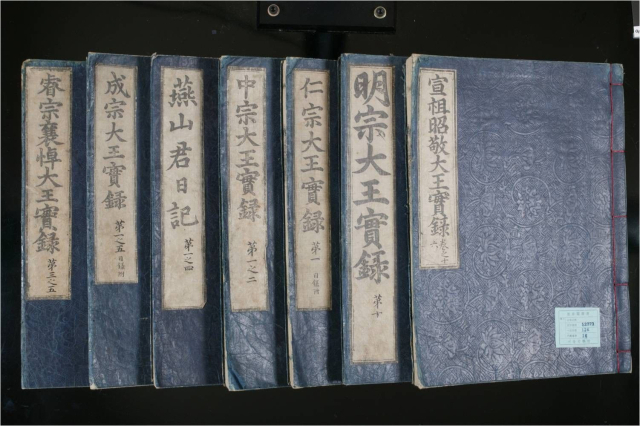 宣祖昭敬大王實録 卷之十六
明宗大王實録 第十
仁宗大王實録 第一 目録附
中宗大王實録 第一之二
燕山君日記 第一之四
成宗大王實録 第一之五 目録附
睿宗襄悼大王實録 第三之五